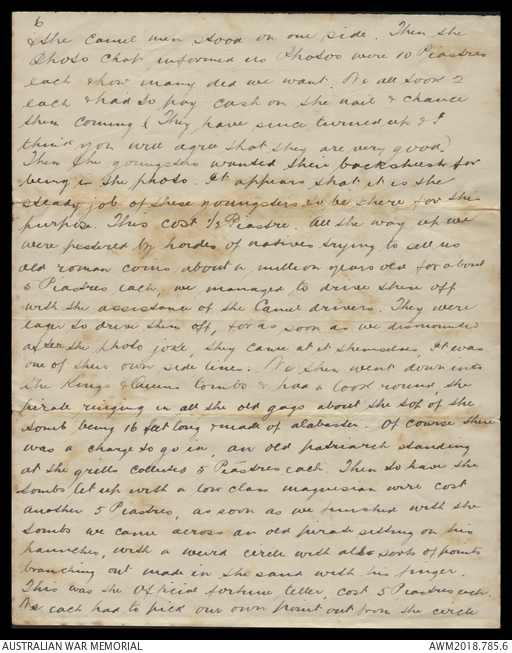 6
& the camel men stood on one side. Then the
Photo chap informed us Photos were 10 Piastres
each & how many did we want. We all took 2
each & had to pay cash on the nail & chance
them coming (They have since turned up & I
think you will agree that they are very good)
Then the youngsters wanted their backsheesh for
being in the photo. It appears that it is the
steady job of these youngsters to be there for this
purpose. This cost 1/2 Piastre. All the way up we
were pestered by hordes of natives trying to sell us
old roman coins about a million years old for about
5 Piastres each, we managed to drive them off
with the assistance of the Camel drivers. They were
eager to drive them off, for as soon as we dismounted
after the photo joke, they came at it themselves, it was
one of their own side lines. We then went down into
the Kings & Queens tombs & had a look round, the
pirate, ringing in all the old gags about the top of the
tomb being 16 feet long & made of alabaster. Of course there
was a charge to go in, an old patriarch standing
at the grille collected 5 Piastres each. Then to have the
tombs let up with a low class magnesian wire cost
another 5 Piastres, as soon as we finished with the
tombs we came across an old pirate sitting on his
haunches, with a weird circle with all sorts of points
branching out made in the sand with his finger.
This was the official fortune teller, cost 5 Piastres each.
We each had to pick our own point out from the circle
AUSTRALIAN WAR MEMORIAL
AWM2018.785.6